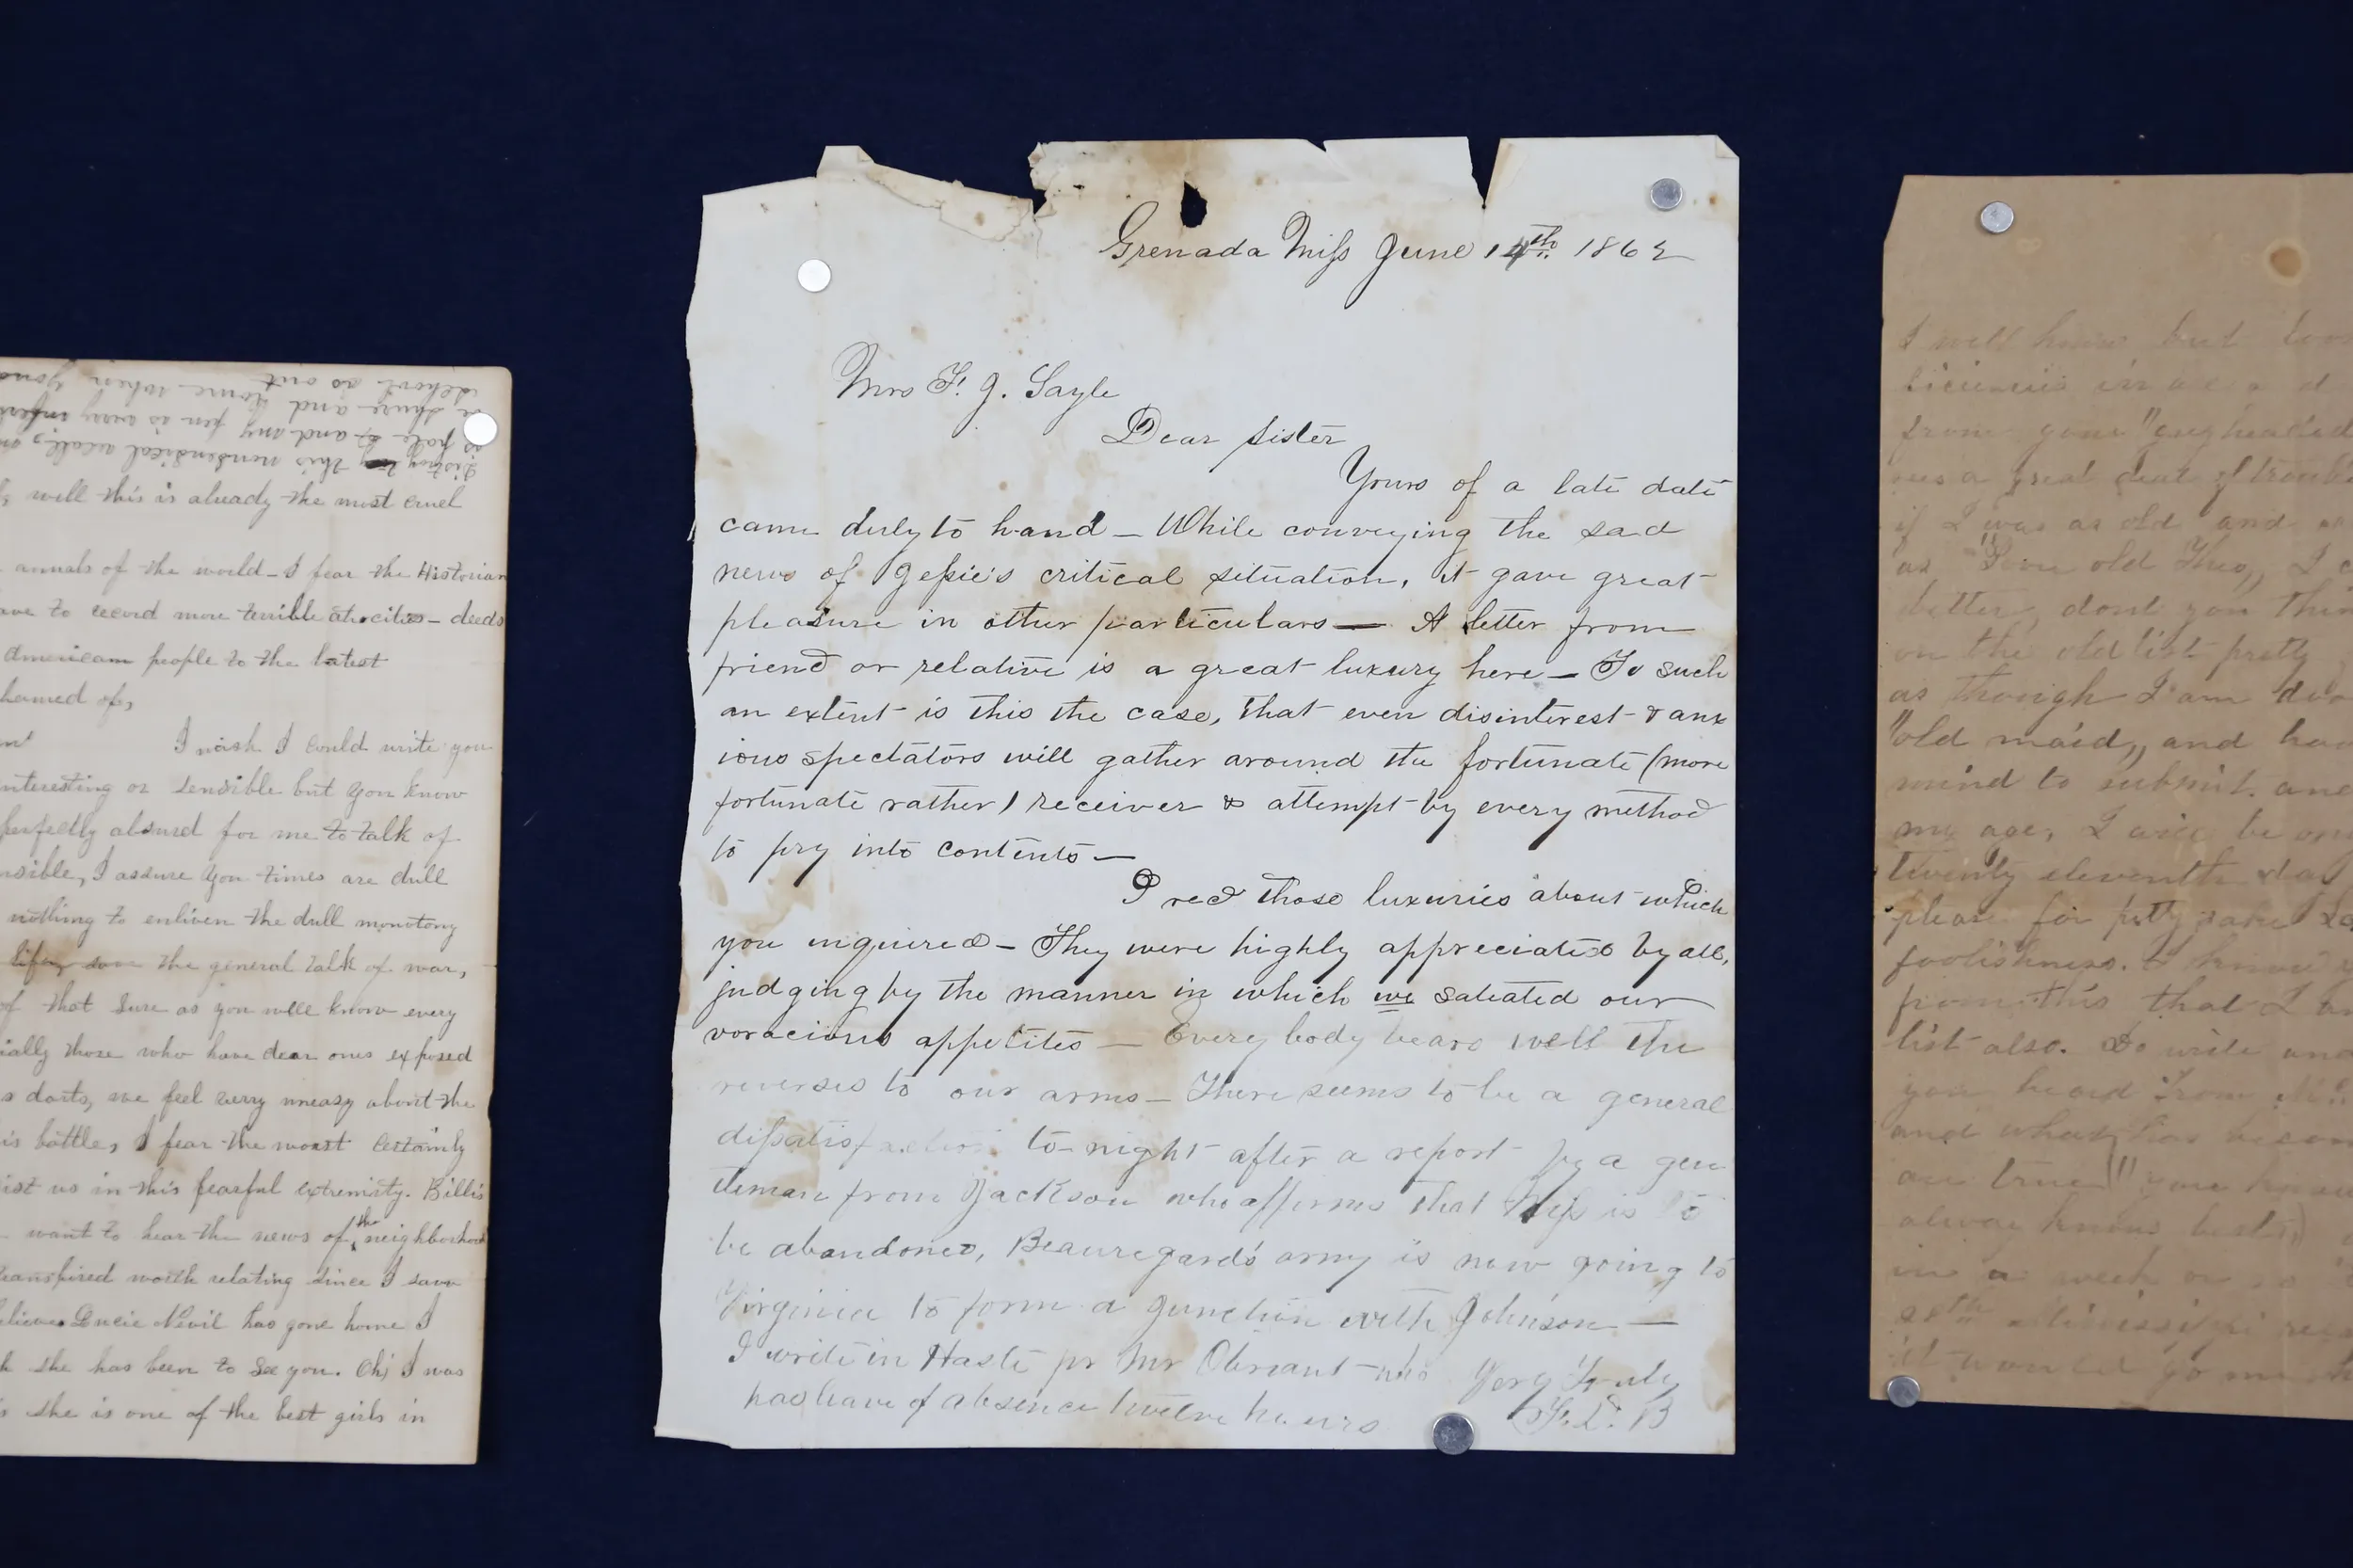 Grenada Miss June 14th 1862
Mrs F. J. Sayle
Dear Sister
Yours of a late date
came duly to hand — While conveying the sad
news of Jessie's critical situation, it gave great
pleasure in other particulars — A letter from
friend or relative is a great luxury here — To such
an extent is this the case, that even disinterest & anx
ious spectators will gather around the fortunate (more
fortunate rather) receiver & attempt by every method
to pry into contents —
I recd those luxuries about which
you inquired — They were highly appreciated by all,
judging by the manner in which we satiated our
voracious appetites — Every body bears well the
reverses to our arms — There seems to be a general
dissatisfaction to-night after a report by a gen
tleman from Jackson who affirms that Miss is to
be abandoned, Beauregard's army is now going to
Virginia to form a junction with Johnson —
I write in Haste pr Mr Obriant who Very Truly
has leave of absence twelve hours F. L. B
out me when you
and any pen is very
this nonsensical
well this is already the most cruel
annals of the world — I fear the Historian
to record more terrible atrocities — deeds
American people to the latest
of,
I wish I could write you
interesting or sensible but you know
perfectly absurd for me to talk of
I assure you times are dull
nothing to enliven the dull monotony
the general talk of war,
of that sure as you well know every
those who have dear ones exposed
darts, we feel very uneasy about the
battle, I fear the worst Certainly
us in this fearful extremity. Billis
want to hear the news of the neighborhood
worth relating since I saw
Lucie Nevil has gone home I
she has been to see you. Oh! I was
she is one of the best girls in
I well know but
from your
a great deal of trouble
if I was as old and
as "Som old Theo,, I
better, dont you think
on the old list pretty
as though I am
"old maid,, and have
mind to submit. and
my age, I will be
twenty eleventh
please for pitty sake
foolishness. I know
from this that I
list also. Do write and
you heard from
and what has become
are true" you know
always knows best
in a week or so
it would go